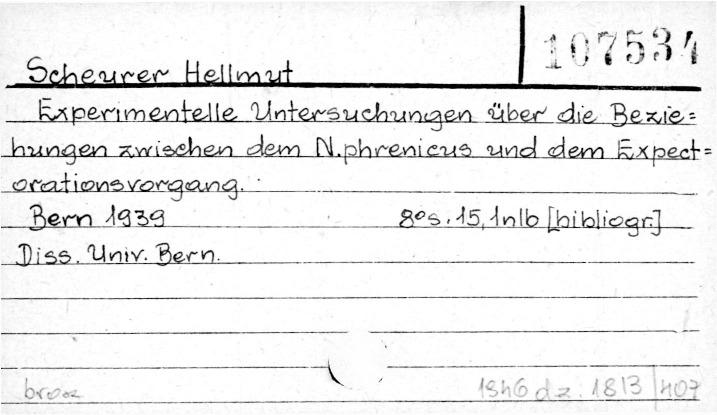 107534
Scheurer Hellmut
Experimentelle Untersuchungen über die Bezie=
hungen zwischen dem N.phrenicus und dem Expect=
orationsvorgang.
Bern 1939 8°s.15,1nlb [bibliogr.]
Diss. Univ. Bern.
brosz 1946 dz. 1813/407